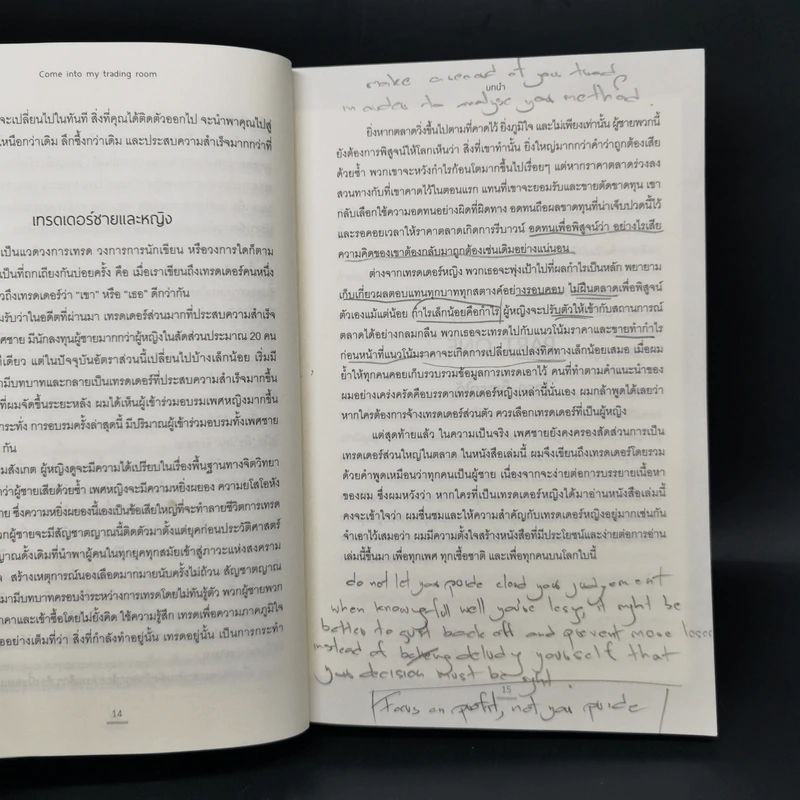 Come into my trading room
จะเปลี่ยนไปในทันที สิ่งที่คุณได้ติดตัวออกไป จะนำพาคุณไปสู่
เหนือกว่าเดิม ลึกซึ้งกว่าเดิม และประสบความสำเร็จมากกว่าที่
เทรดเดอร์ชายและหญิง
เป็นแวดวงการเทรด วงการการนักเขียน หรือวงการใดก็ตาม
เป็นที่ถกเถียงกันบ่อยครั้ง คือ เมื่อเราเขียนถึงเทรดเดอร์คนหนึ่ง
วถึงเทรดเดอร์ว่า "เขา" หรือ "เธอ" ดีกว่ากัน
มรับว่าในอดีตที่ผ่านมา เทรดเดอร์ส่วนมากที่ประสบความสำเร็จ
พศชาย มีนักลงทุนผู้ชายมากกว่าผู้หญิงในสัดส่วนประมาณ 20 คน
ทีเดียว แต่ในปัจจุบันอัตราส่วนนี้เปลี่ยนไปบ้างเล็กน้อย เริ่มมี
ามีบทบาทและกลายเป็นเทรดเดอร์ที่ประสบความสำเร็จมากขึ้น
ที่ผมจัดขึ้นระยะหลัง ผมได้เห็นผู้เข้าร่วมอบรมเพศหญิงมากขึ้น
ระทั่ง การอบรมครั้งล่าสุดนี้ มีปริมาณผู้เข้าร่วมอบรมทั้งเพศชาย
กัน
มสังเกต ผู้หญิงดูจะมีความได้เปรียบในเรื่องพื้นฐานทางจิตวิทยา
กว่าผู้ชายเสียด้วยซ้ำ เพศหญิงจะมีความหยิ่งผยอง ความยโสโอหัง
าย ซึ่งความหยิ่งผยองนี้เองเป็นข้อเสียใหญ่ที่จะทำลายชีวิตการเทรด
วกผู้ชายจะมีสัญชาตญาณนี้ติดตัวมาตั้งแต่ยุคก่อนประวัติศาสตร์
ญาณดั้งเดิมที่นำพาผู้คนในทุกยุคทุกสมัยเข้าสู่ภาวะแห่งสงคราม
สร้างเหตุการณ์นองเลือดมากมายนับครั้งไม่ถ้วน สัญชาตญาณ
มามีบทบาทครอบงำระหว่างการเทรดโดยไม่ทันรู้ตัว พวกผู้ชายพวก
าคาและเข้าซื้อโดยไม่ยั้งคิด ใช้ความรู้สึก เทรดเพื่อความภาคภูมิใจ
ออย่างเต็มที่ว่า สิ่งที่กำลังทำอยู่นั้น เทรดอยู่นั้น เป็นการกระทำ
14
make a record of your trade,
บทนำ
in order to analyse your method.
ยิ่งหากตลาดวิ่งขึ้นไปตามที่คาดไว้ ยิ่งภูมิใจ และไม่เพียงเท่านั้น ผู้ชายพวกนี้
ยังต้องการพิสูจน์ให้โลกเห็นว่า สิ่งที่เขาทำนั้น ยิ่งใหญ่มากกว่าคำว่าถูกต้องเสีย
ด้วยซ้ำ พวกเขาจะหวังกำไรก้อนโตมากขึ้นไปเรื่อยๆ แต่หากราคาตลาดร่วงลง
สวนทางกับที่เขาคาดไว้ในตอนแรก แทนที่เขาจะยอมรับและขายตัดขาดทุน เขา
กลับเลือกใช้ความอดทนอย่างผิดที่ผิดทาง อดทนถือผลขาดทุนที่น่าเจ็บปวดนี้ไว้
และรอคอยเวลาให้ราคาตลาดเกิดการรีบาวน์ อดทนเพื่อพิสูจน์ว่า อย่างไรเสีย
ความคิดของเขาต้องกลับมาถูกต้องเช่นเดิมอย่างแน่นอน
ต่างจากเทรดเดอร์หญิง พวกเธอจะพุ่งเป้าไปที่ผลกำไรเป็นหลัก พยายาม
เก็บเกี่ยวผลตอบแทนทุกบาททุกสตางค์อย่างรอบคอบ ไม่ฝืนตลาดเพื่อพิสูจน์
ตัวเองแม้แต่น้อย กำไรเล็กน้อยคือกำไร ผู้หญิงจะปรับตัวให้เข้ากับสถานการณ์
ตลาดได้อย่างกลมกลืน พวกเธอจะเทรดไปกับแนวโน้มราคาและขายทำกำไร
ก่อนหน้าที่แนวโน้มราคาจะเกิดการเปลี่ยนแปลงทิศทางเล็กน้อยเสมอ เมื่อผม
ย้ำให้ทุกคนคอยเก็บรวบรวมข้อมูลการเทรดเอาไว้ คนที่ทำตามคำแนะนำของ
ผมอย่างเคร่งครัดคือบรรดาเทรดเดอร์หญิงเหล่านี้นั่นเอง ผมกล้าพูดได้เลยว่า
หากใครต้องการจ้างเทรดเดอร์ส่วนตัว ควรเลือกเทรดเดอร์ที่เป็นผู้หญิง
แต่สุดท้ายแล้ว ในความเป็นจริง เพศชายยังคงครองสัดส่วนการเป็น
เทรดเดอร์ส่วนใหญ่ในตลาด ในหนังสือเล่มนี้ ผมจึงเขียนถึงเทรดเดอร์โดยรวม
ด้วยคำพูดเหมือนว่าทุกคนเป็นผู้ชาย เนื่องจากจะง่ายต่อการบรรยายเนื้อหา
ของผม ซึ่งผมหวังว่า หากใครที่เป็นเทรดเดอร์หญิงได้มาอ่านหนังสือเล่มนี้
คงจะเข้าใจว่า ผมชื่นชมและให้ความสำคัญกับเทรดเดอร์หญิงอยู่มากเช่นกัน
จำเอาไว้เสมอว่า ผมมีความตั้งใจสร้างหนังสือที่มีประโยชน์และง่ายต่อการอ่าน
เล่มนี้ขึ้นมา เพื่อทุกเพศ ทุกเชื้อชาติ และเพื่อทุกคนบนโลกใบนี้
do not let your pride cloud your judgement
when know full well you're losing, it might be
better to just back off and prevent more loses
instead of deluding yourself that
your decision must be right.
15
Focus on profit, not your pride